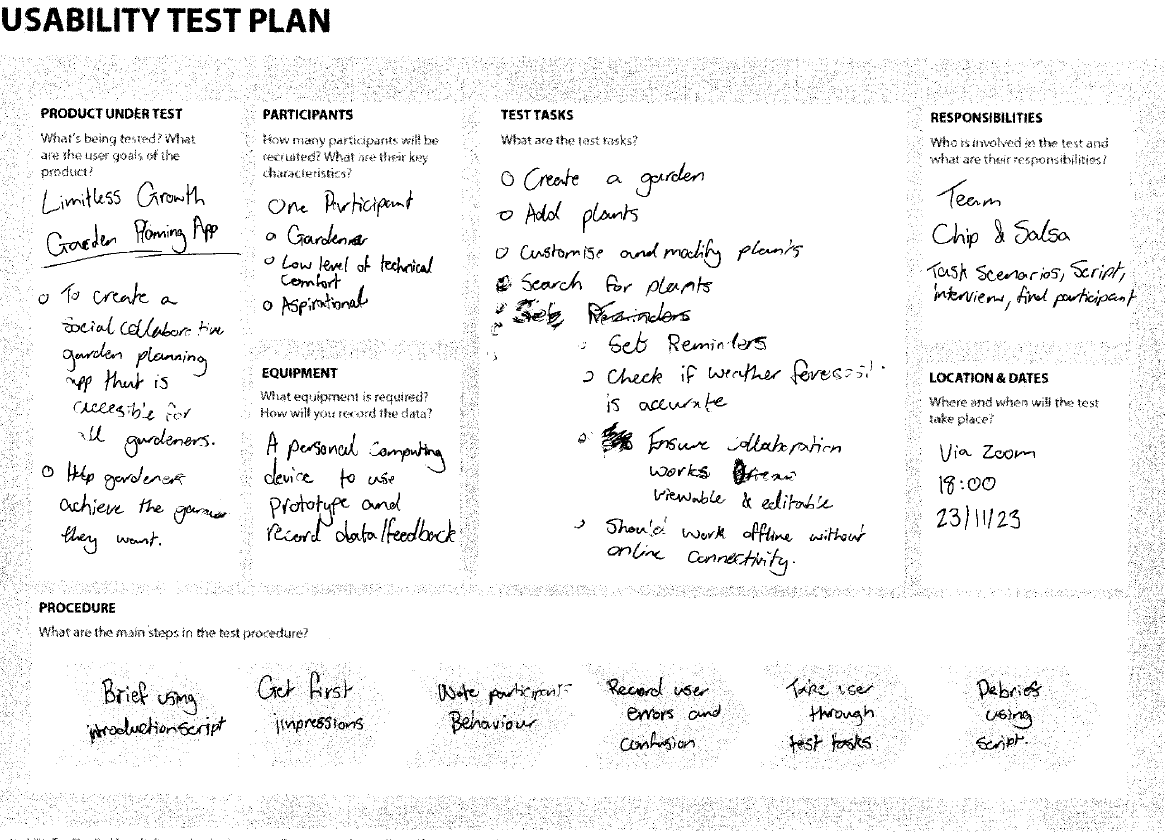 USABILITY TEST PLAN
PRODUCT UNDER TEST
What's being tested? What
are the user goals of the
product?
Limitless Growth
Garden Planning App
To create a
social collaborative
garden planning
app that is
accessible for
all gardeners.
Help gardeners
achieve the garden
they want.
PARTICIPANTS
How many participants will be
recruited? What are their key
characteristics?
One Participant
Gardener
Low level of technical
comfort
Aspirational
EQUIPMENT
What equipment is required?
How will you record the data?
A personal computing
device to use
prototype and
record data/feedback
TEST TASKS
What are the test tasks?
Create a garden
Add plants
Customise and modify plants
Search for plants
Set Reminders
Set Reminders
Check if weather forecast
is accurate
Ensure collaboration
works
viewable & editable
Should work offline without
online connectivity.
RESPONSIBILITIES
Who is involved in the test and
what are their responsibilities?
Team
Chip & Salsa
Task Scenarios, Script,
interview, find participant
LOCATION & DATES
Where and when will the test
take place?
Via Zoom
18:00
23/11/23
PROCEDURE
What are the main steps in the test procedure?
Brief using
introduction script
Get first
impressions
Note participants
Behaviour
Record user
errors and
confusion
Take user
through
test tasks
Debrief
using
script.